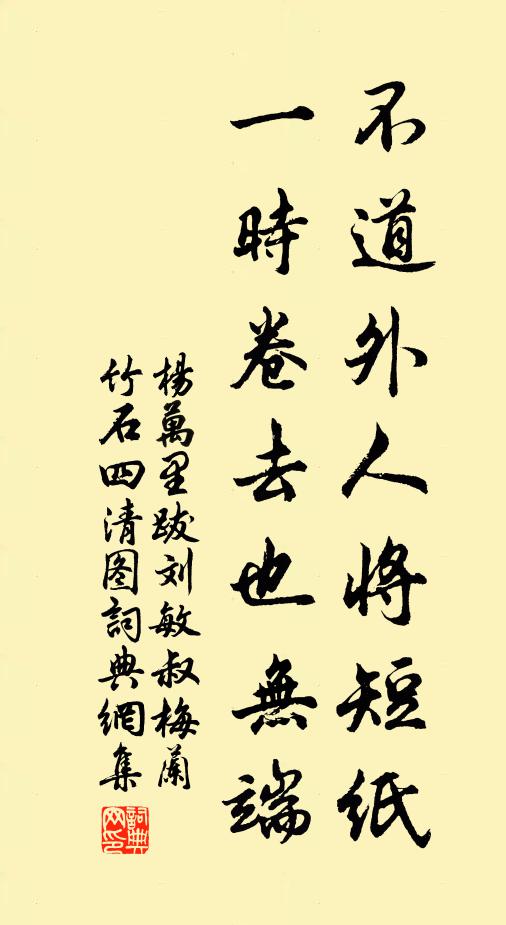 不道外人將短紙
一時卷去也無端
楊萬里跋刘敏叔梅蘭
竹石四清图詞典網集
詞典網印